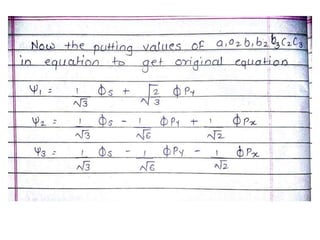 Now the putting values of a,a2b,b2b3c2c3
in equation to get original equation
Ψ1 = 1/√3 Φs + √2/3 ΦPy
Ψ2 = 1/√3 Φs - 1/√6 ΦPy + 1/√2 ΦPx
Ψ3 = 1/√3 Φs - 1/√6 ΦPy - 1/√2 ΦPx